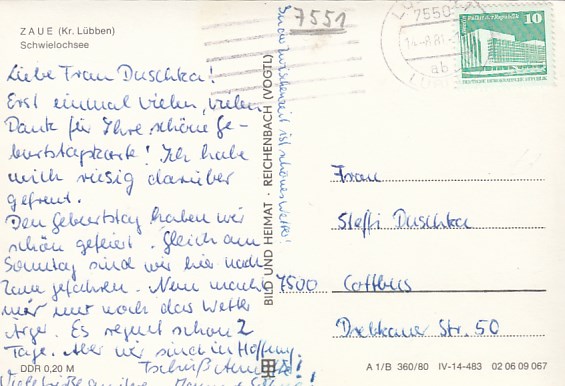 ZAUE (Kr. Lübben)
Schwielochsee
Liebe Frau Duschka!
Erst einmal vielen, vielen
Dank für Ihre schöne Ge-
burtstagskarte! Ich habe
mich riesig darüber
gefreut.
Den Geburtstag haben wir
schön gefeiert. Gleich am
Sonntag sind wir hier nach
Zaue gefahren. Nun macht
nur noch das Wetter
Ärger. Es regnet schon 2
Tage. Aber wir sind in Hoffnung.
Tschüß
Viele Grüße
DDR 0,20 M
Inzwischenzeit ist schönes Wetter!
BILD UND HEIMAT · REICHENBACH (VOGTL)
7551
7550
10
Frau
Steffi Duschka
7500 Cottbus
Drebkauer Str. 50
A 1/B 360/80 IV-14-483 02 06 09 067